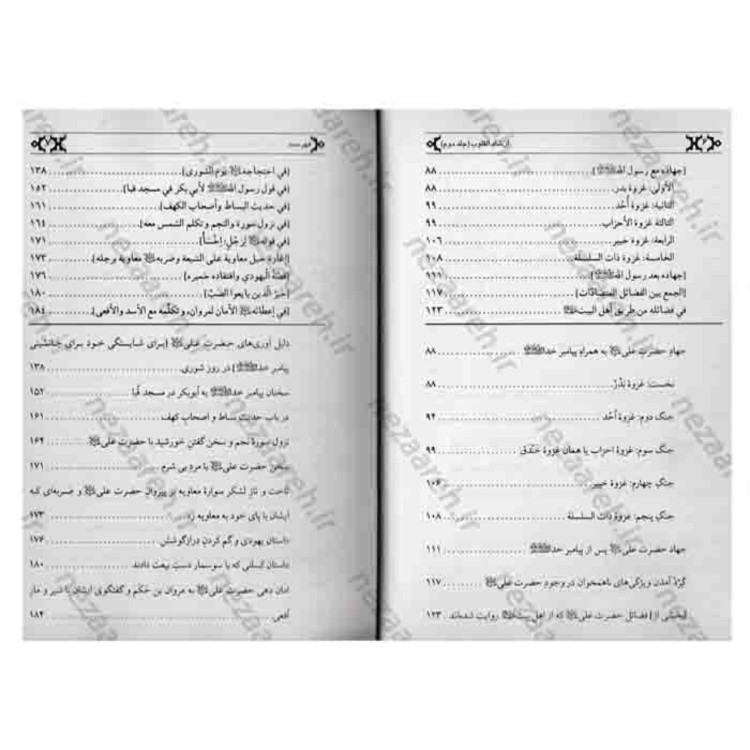 ارشاد القلوب (جلد دوم)
(جهاده مع رسول الله ﷺ) ۸۸
الأولى: غزوة بدر ۸۸
الثانية: غزوة أُحُد ۹۹
الثالثة غزوة الأحزاب ۹۹
الرابعة: غزوة خيبر ۱۰۶
الخامسة: غزوة ذات السلسلة ۱۰۸
(جهاده بعد رسول الله ﷺ) ۱۱۱
(الجمع بين الفضائل المتضادّات) ۱۱۷
في فضائله من طريق أهل البيت ۱۲۳
جهاد حضرت علی به همراه پیامبر خدا ﷺ ۸۸
نخست: غزوهٔ بَدْر ۸۸
جنگ دوم: غزوهٔ اُحُد ۹۴
جنگ سوم: غزوهٔ احزاب یا همان غزوهٔ خَنْدَق ۹۹
جنگ چهارم: غزوهٔ خیبر ۱۰۶
جنگ پنجم: غزوهٔ ذات السلسلة ۱۰۸
جهاد حضرت علی پس از پیامبر خدا ﷺ ۱۱۱
گِرْد آمدن ویژگی‌های ناهمخوان در وجود حضرت علی ۱۱۷
(بخشی از) فضائل حضرت علی که از اهل بیت روایت شده‌اند ۱۲۳
فهرست
(في احتجاجه يوم الشورى) ۱۳۸
(في قول رسول الله ﷺ لأبي بكر في مسجد قبا) ۱۵۲
(في حديث البساط وأصحاب الكهف) ۱۶۱
(في نزول سورة والنجم وتكلم الشمس معه) ۱۶۴
(في قوله لِرَجُلٍ: اِخْسَأْ) ۱۷۱
(إغارة خيل معاوية على الشيعة وضربه معاوية برجله) ۱۷۳
(قصّة اليهودي وافتقاده حميره) ۱۷۶
(خَبَرُ الّذين بايعوا الضبّ) ۱۸۰
(في إعطائه الأمان لمروان، وتكلّمه مع الأسد والأفعى) ۱۸۴
دلیل آوری‌های حضرت علی (برای شایستگی خود برای جانشینی
پیامبر خدا ﷺ) در روز شوری ۱۳۸
سخنان پیامبر خدا ﷺ به ابوبکر در مسجد قُبا ۱۵۲
در باب حدیث بساط و اصحاب کهف ۱۶۱
نزول سورهٔ نجم و سخن گفتن خورشید با حضرت علی ۱۶۴
سخن حضرت علی با مردِ بی شرم ۱۷۱
تاخت و تاز لشکر سوارهٔ معاویه بر پیروان حضرت علی و ضربه‌ای که
ایشان با پای خود به معاویه زد ۱۷۳
داستان یهودی و گم کردن درازگوشش ۱۷۶
داستان کسانی که با سوسمار دستِ بیعت دادند ۱۸۰
امان دهی حضرت علی به مروان بن حَکَم و گفتگوی ایشان با شیر و مار
افعی ۱۸۴
nezaareh.ir